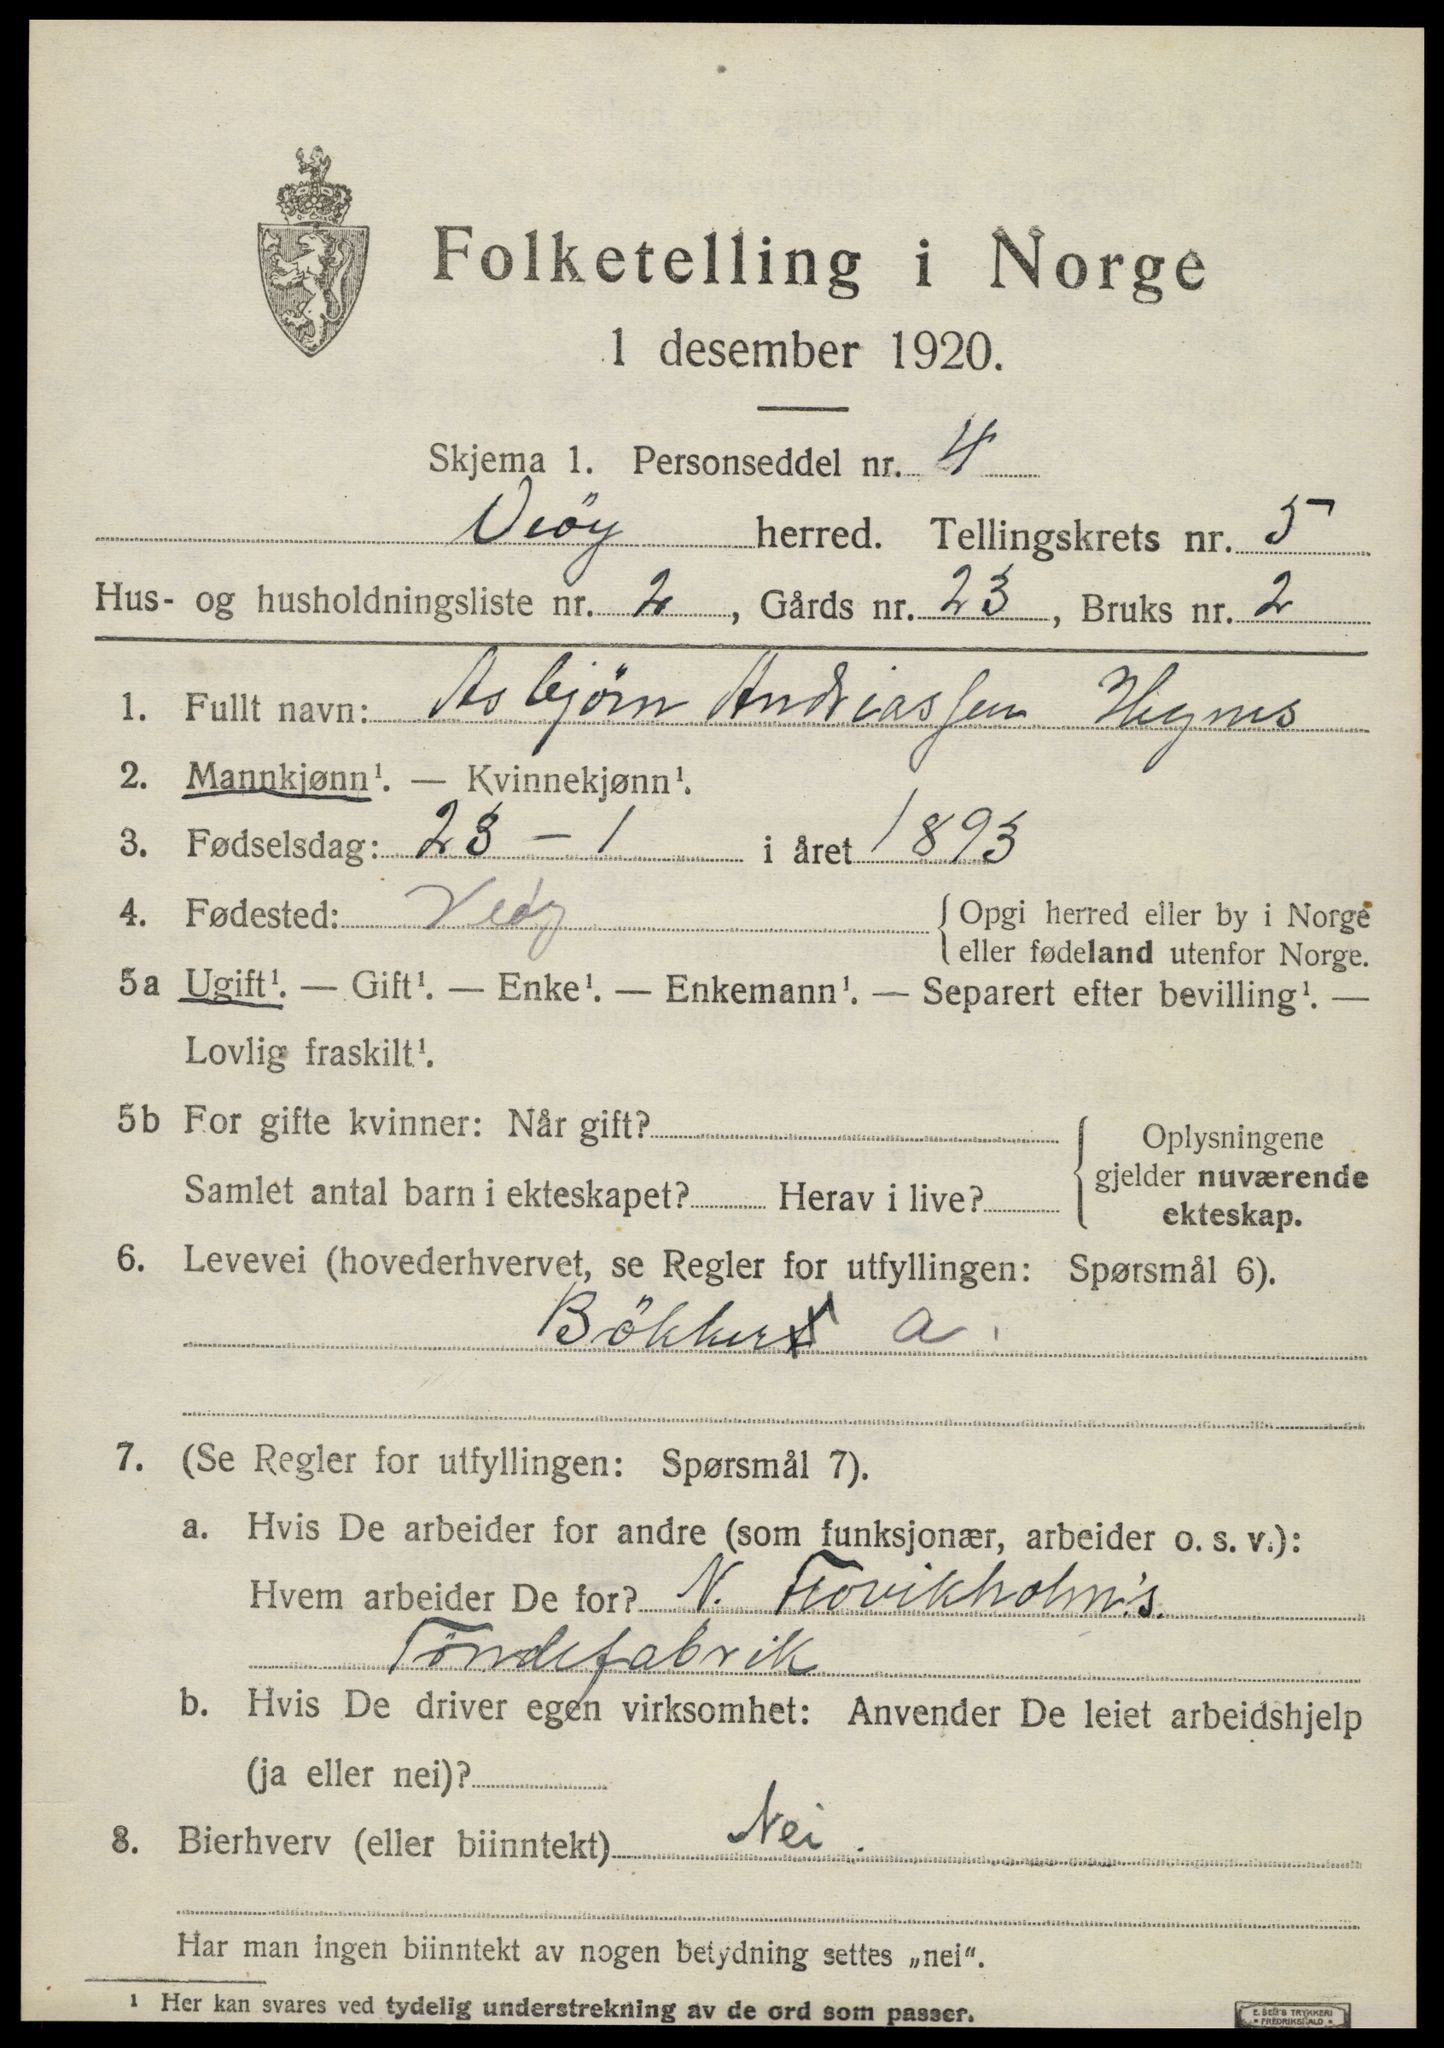 Folketelling i Norge
1 desember 1920.
Skjema 1. Personseddel nr. 4
Veöy herred. Tellingskrets nr. 5
Hus- og husholdningsliste nr. 2, Gårds nr. 23, Bruks nr. 2
1. Fullt navn: Asbjörn Andreassen
2. Mannkjønn¹. — Kvinnekjønn¹.
3. Fødselsdag: 23 – 1 i året 1893
4. Fødested: Veöy { Opgi herred eller by i Norge
eller fødeland utenfor Norge.
5a Ugift¹. — Gift¹. — Enke¹. — Enkemann¹. — Separert efter bevilling¹. —
Lovlig fraskilt¹.
5b For gifte kvinner: Når gift? { Oplysningene
gjelder nuværende
Samlet antal barn i ekteskapet? Herav i live?
ekteskap.
6. Levevei (hovederhvervet, se Regler for utfyllingen: Spørsmål 6).
Bökker a.
7. (Se Regler for utfyllingen: Spørsmål 7).
a. Hvis De arbeider for andre (som funksjonær, arbeider o. s. v.):
Hvem arbeider De for? N. Trovikholm's
Töndefabrik
b. Hvis De driver egen virksomhet: Anvender De leiet arbeidshjelp
(ja eller nei)?
8. Bierhverv (eller biinntekt) Nei.
Har man ingen biinntekt av nogen betydning settes „nei“.
¹ Her kan svares ved tydelig understrekning av de ord som passer.
E. SEM'S TRYKKERI
• FREDRIKSHALD •